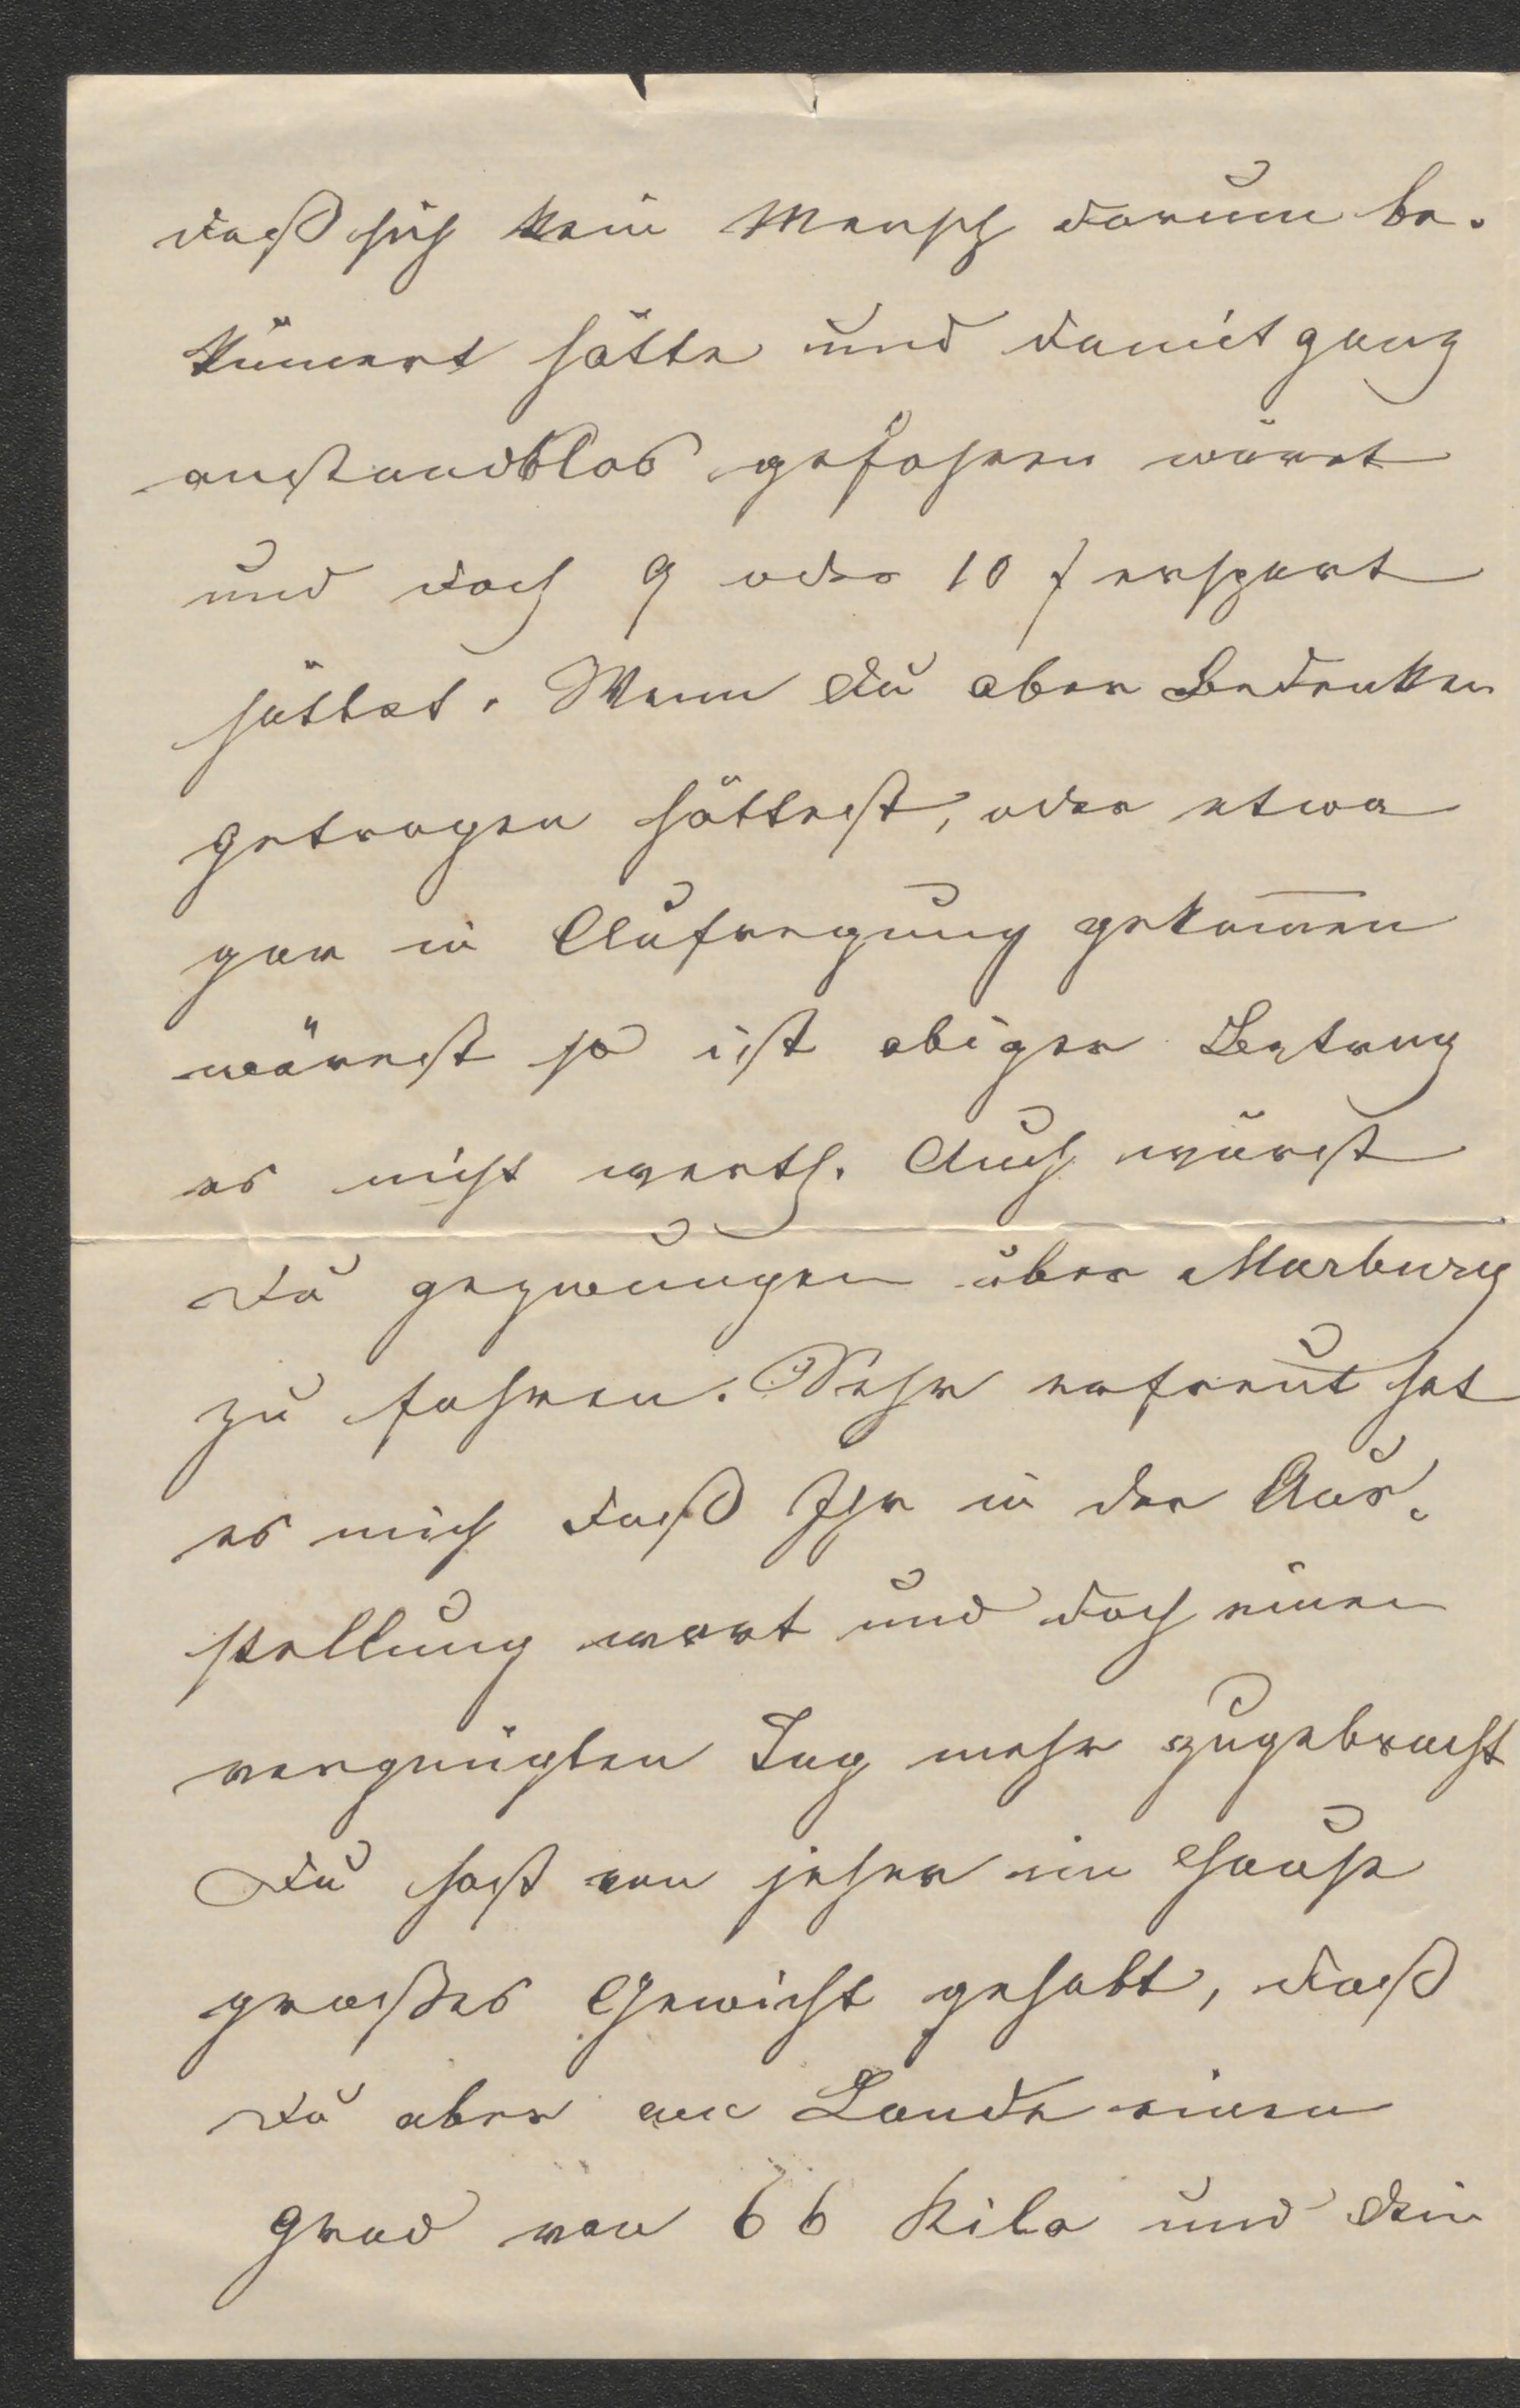 daß sich kein Mensch darum be-
kümert hätte und damit ganz
anstandslos gefahren wäret
und doch 9 oder 10 f erspart
hättet. Wenn Du aber Bedenken
getragen hättest, oder etwa
gar in Aufregung gekom̅en
wärest so ist obiger Betrag
es nicht werth. Auch wärest
Du gezwungen über Marburg
zu fahren. Sehr erfreut hat
es mich daß Ihr in der Aus-
stellung wart und doch einen
vergnügten Tag mehr zugebracht
Du hast von jeher im Hause
großes Gewicht gehabt, daß
Du aber am Lande einen
Grad von 66 Kilo und Dein